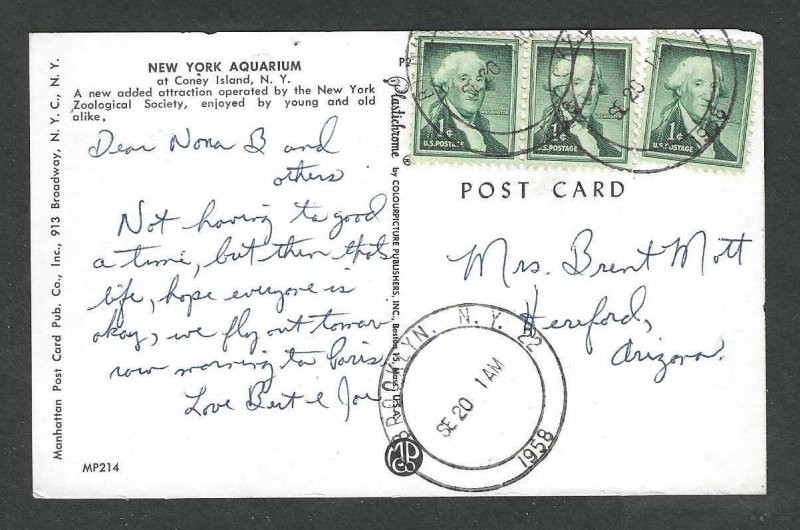 NEW YORK AQUARIUM
at Coney Island, N. Y.
A new added attraction operated by the New York
Zoological Society, enjoyed by young and old
alike.
Dear Nona B and
others
Not having to good
a time, but then thats
life, hope everyone is
okay, we fly out tomor
row morning to Paris
Love Bert & Joe
MP214
Manhattan Post Card Pub. Co., Inc., 913 Broadway, N. Y. C., N. Y.
Plastichrome ® by COLOURPICTURE PUBLISHERS, INC., Boston 15, Mass.
1¢
U.S. POSTAGE
1¢
U.S. POSTAGE
1¢
U.S. POSTAGE
SE 20 1
1958
POST CARD
Mrs. Brent Mott
Hereford,
Arizona.
BROOKLYN, N. Y. 22
SE 20 1 AM
1958